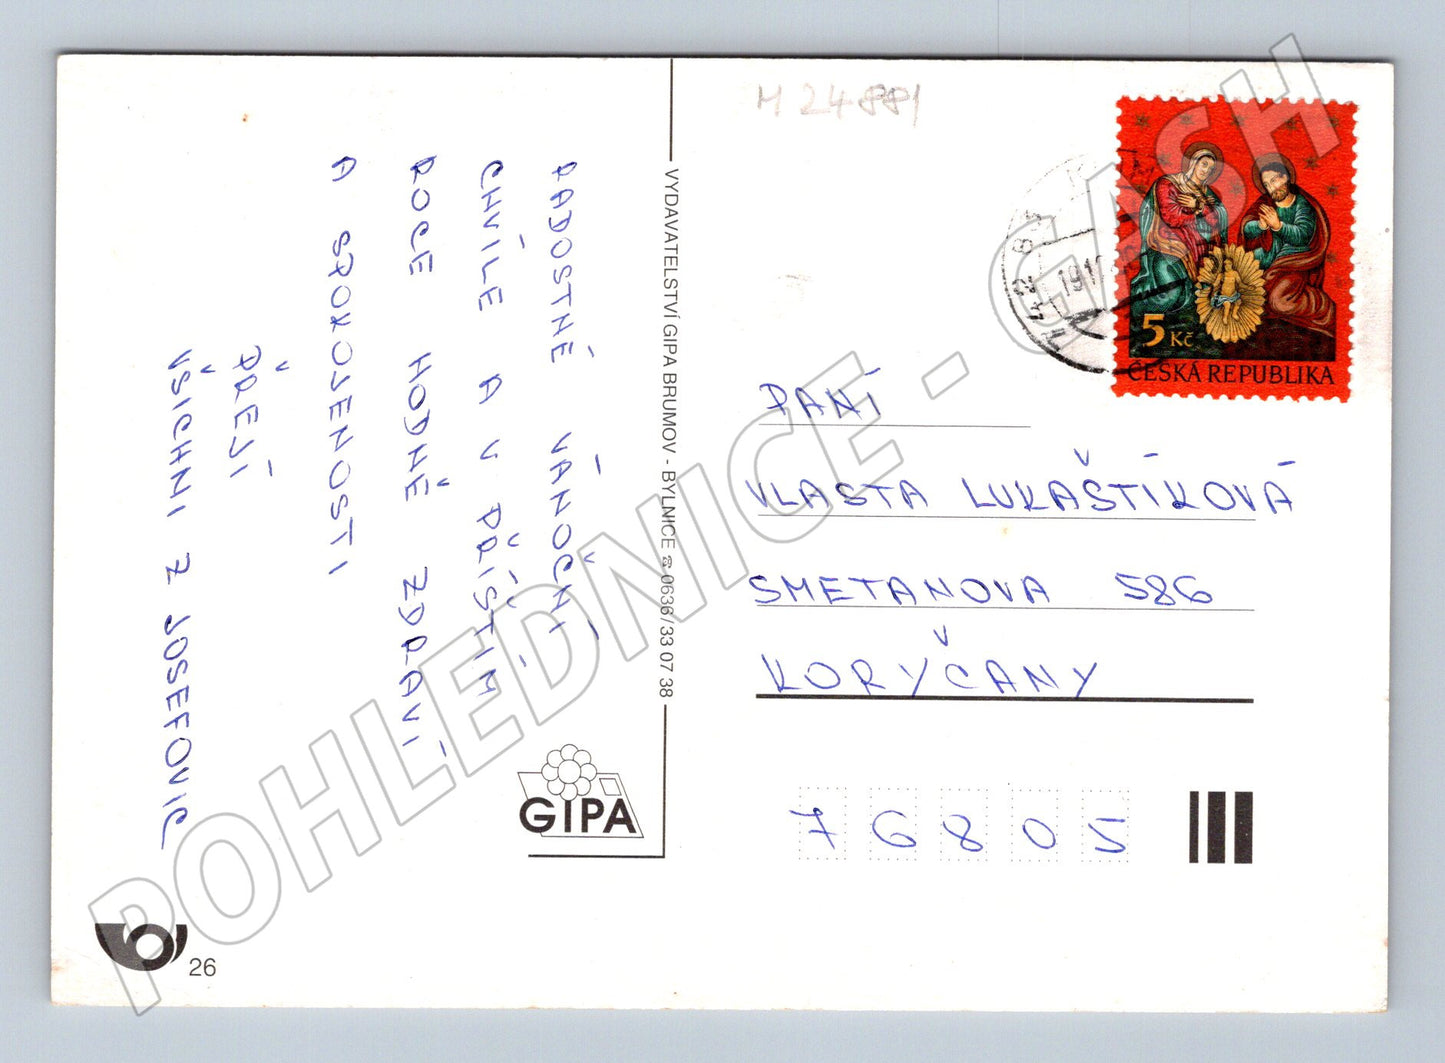 RADOSTNÉ VÁNOČNÍ
CHVÍLE A V PŘÍŠTÍM
ROCE HODNĚ ZDRAVÍ
A SPOKOJENOSTI
PŘEJÍ
VŠICHNI Z JOSEFOVIC
VYDAVATELSTVÍ GIPA BRUMOV - BYLNICE ☎ 0636/33 07 38
GIPA
26
M 24881
5 Kč
ČESKÁ REPUBLIKA
PANÍ
VLASTA LUKAŠTÍKOVÁ
SMETANOVA 586
KORYČANY
76805
POHLEDNICE - GASH